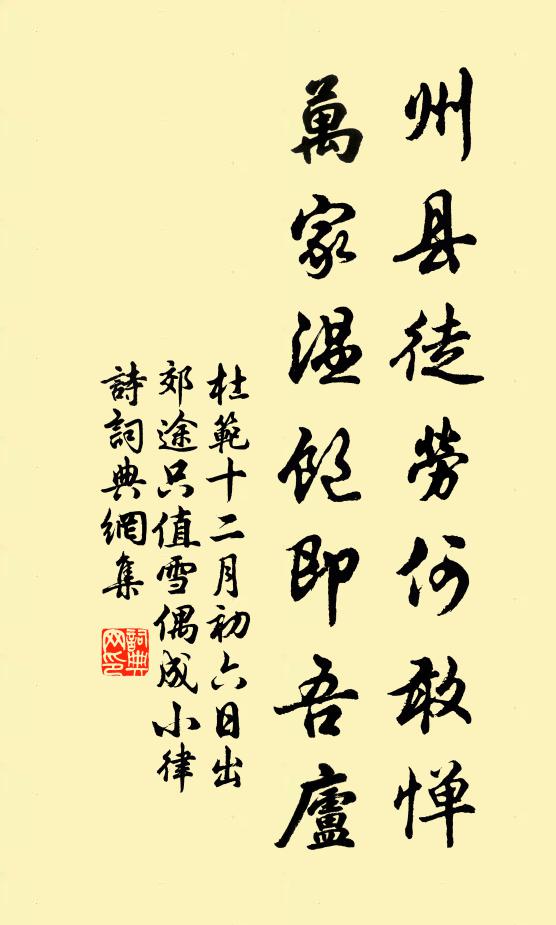 州县徒勞何敢惮
萬家温飽即吾廬
杜範十二月初六日出
郊途只值雪偶成小律
詩詞典網集
詞典
网印